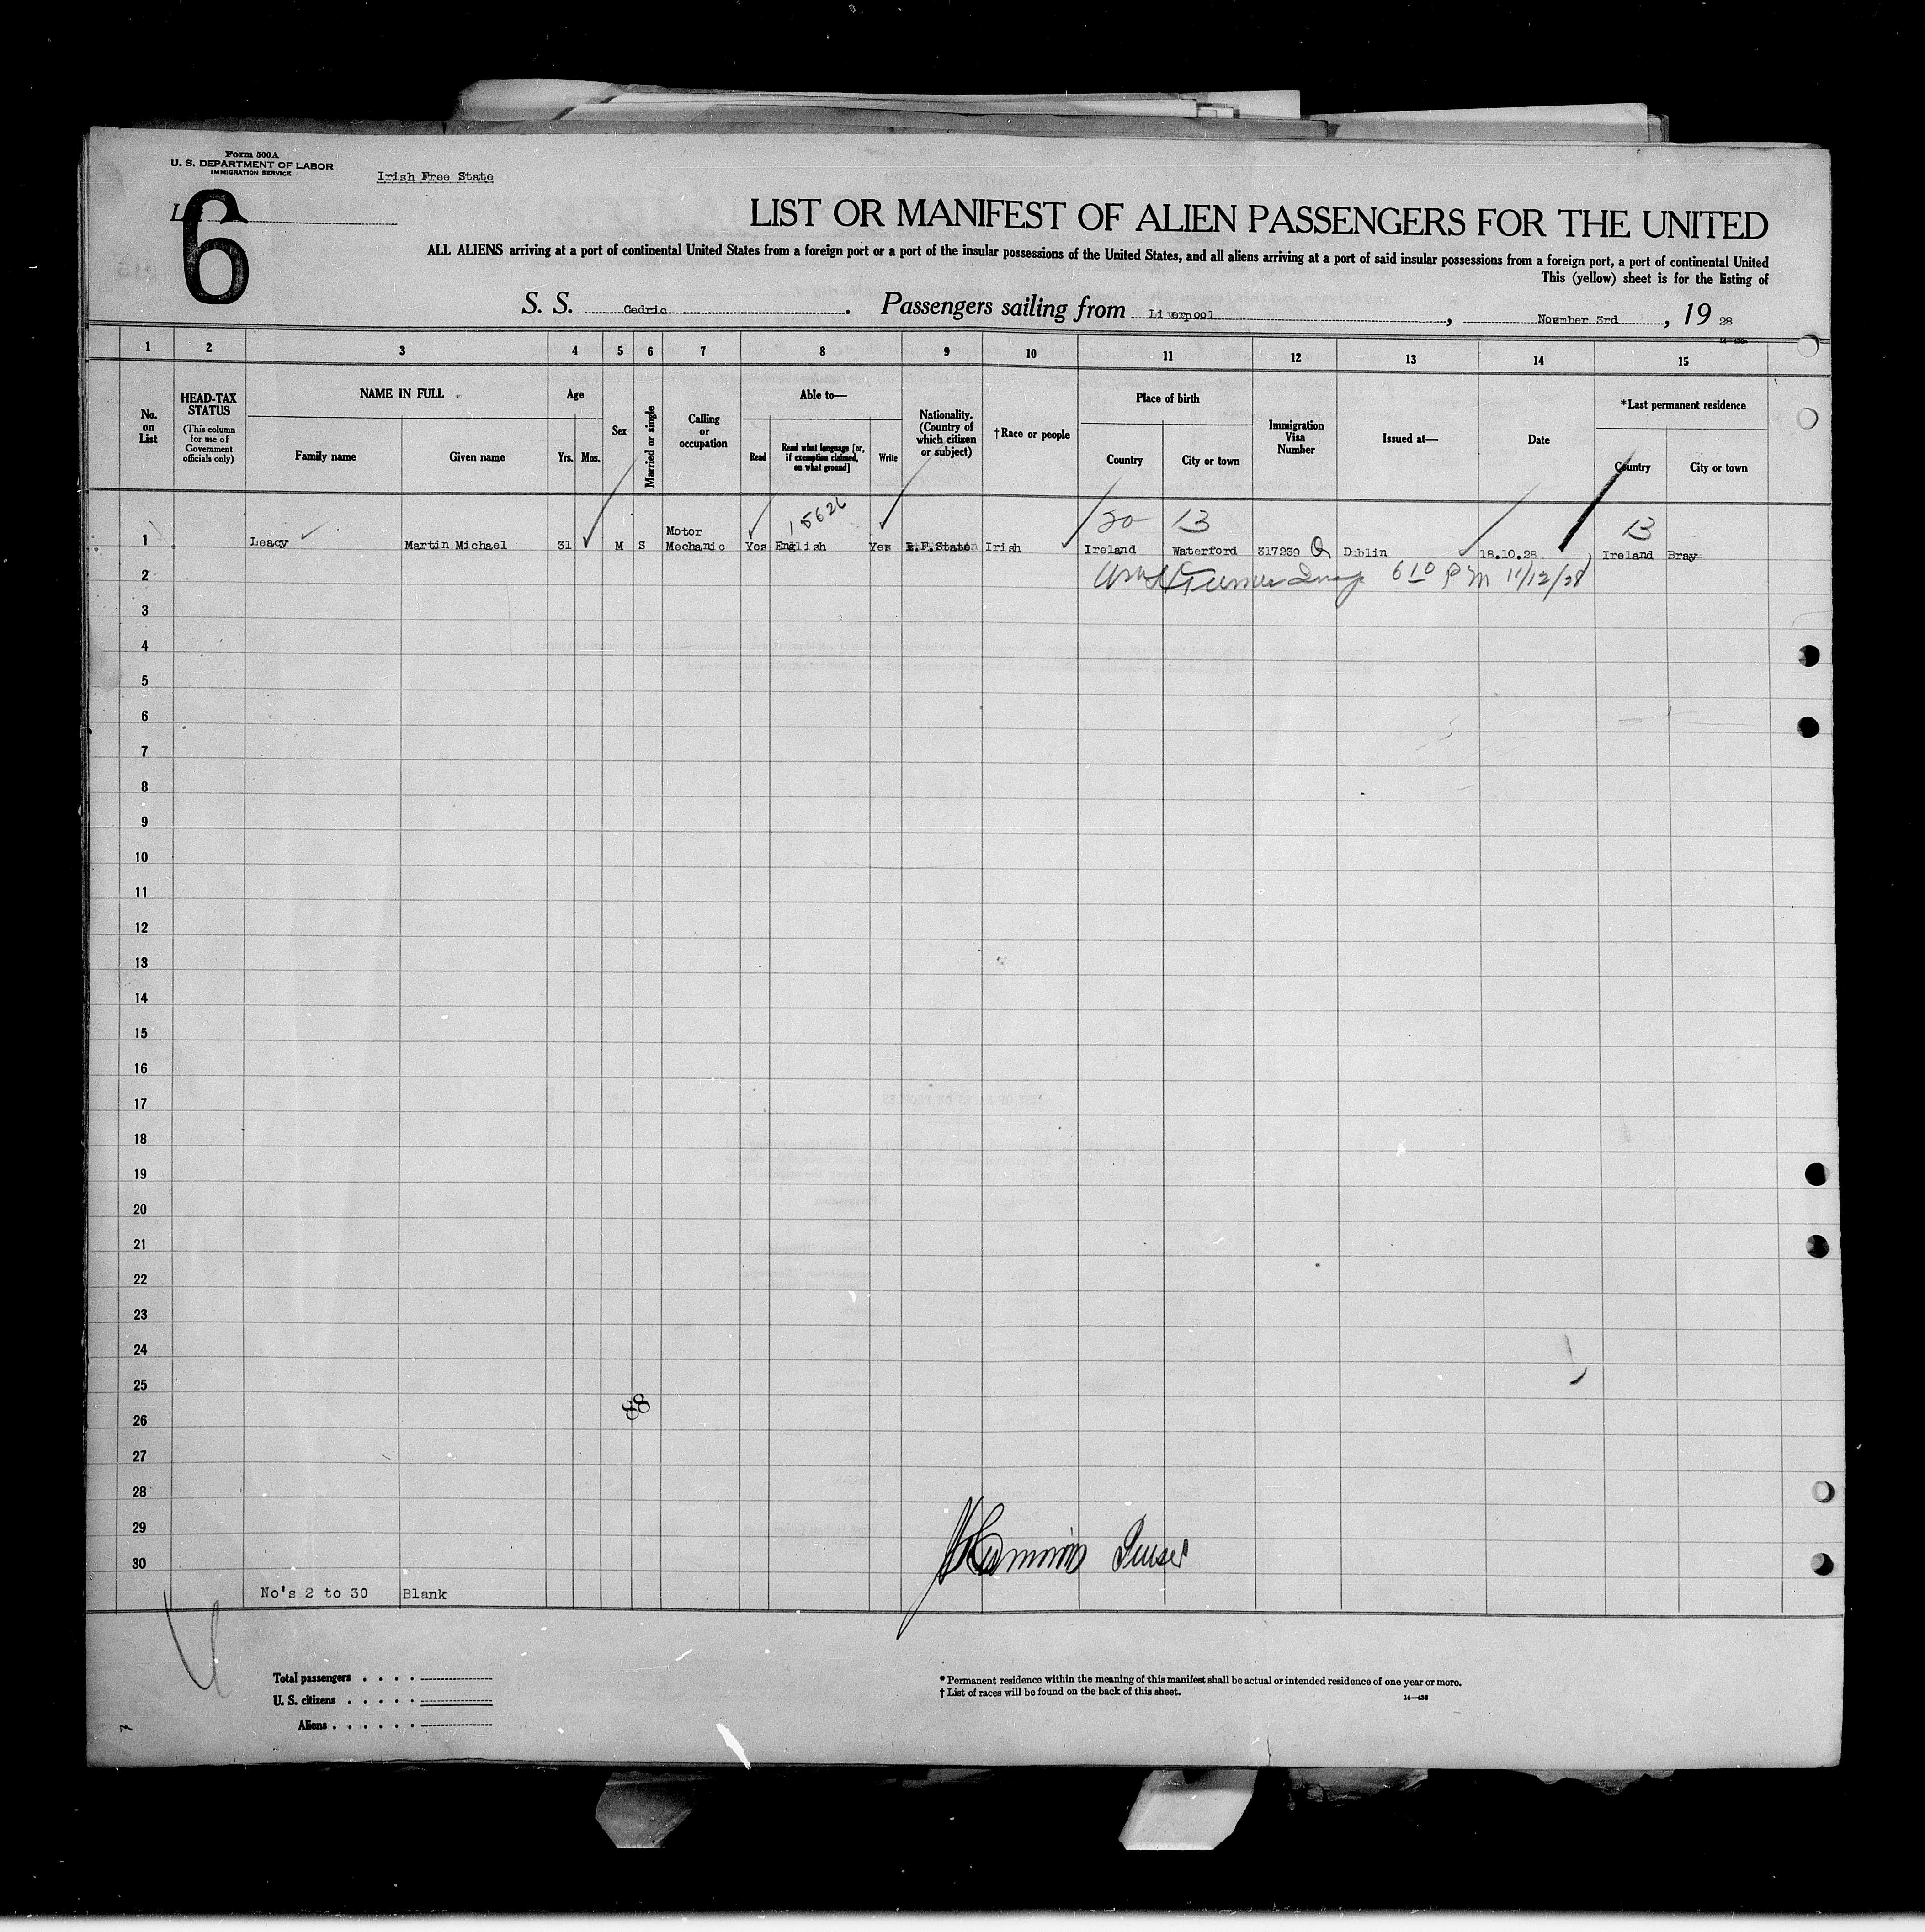 Form 500A
U. S. DEPARTMENT OF LABOR
IMMIGRATION SERVICE
Irish Free State
6
LIST OR MANIFEST OF ALIEN PASSENGERS FOR THE UNITED
ALL ALIENS arriving at a port of continental United States from a foreign port or a port of the insular possessions of the United States, and all aliens arriving at a port of said insular possessions from a foreign port, a port of continental United
This (yellow) sheet is for the listing of
S. S. Cedric. Passengers sailing from Liverpool, November 3rd, 19 28
1 2 3 4 5 6 7 8 9 10 11 12 13 14 15
No. on List
HEAD-TAX STATUS
(This column for use of Government officials only)
NAME IN FULL
Family name
Given name
Age
Yrs.
Mos.
Sex
Married or single
Calling or occupation
Able to—
Read
Read what language [or, if exemption claimed, on what ground]
Write
Nationality. (Country of which citizen or subject)
†Race or people
Place of birth
Country
City or town
Immigration Visa Number
Issued at—
Date
*Last permanent residence
Country
City or town
15626
20 13 13
1 Leacy Martin Michael 31 M S Motor Mechanic Yes English Yes I.F.State Irish Ireland Waterford 317230 Q Dublin 18.10.28 Ireland Bray
2 6 10 PM 11/12/28
3
4
5
6
7
8
9
10
11
12
13
14
15
16
17
18
19
20
21
22
23
24
25
26
27
28
29
30
No's 2 to 30 Blank
Total passengers . . . .
U. S. citizens . . . . .
Aliens . . . . . .
*Permanent residence within the meaning of this manifest shall be actual or intended residence of one year or more.
†List of races will be found on the back of this sheet.
14—426